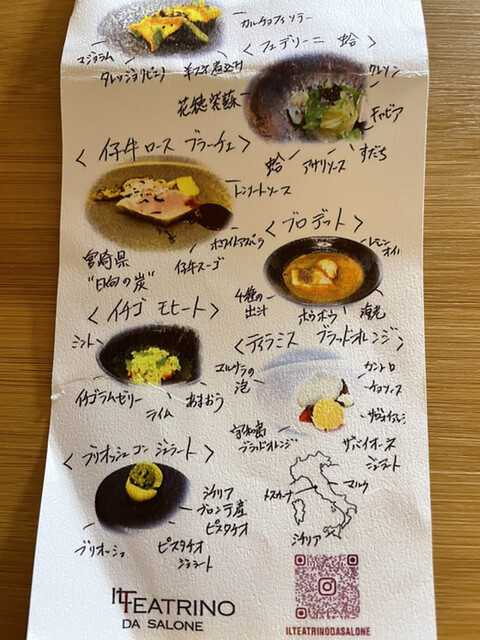 カルチョフィソテー
マジョラム
タレッジョリピエノ
羊スネ煮込み
< フェデリーニ 蛤 >
クレソン
花穂紫蘇
キャビア
すだち
蛤
アサリソース
< 仔牛ロース ブラーチェ >
トンナートソース
ホワイトアスパラ
仔牛スーゴ
宮崎県
"日向の炭"
< ブロデット >
レモン
オイル
4種の
出汁
ホウボウ
海老
< イチゴ モヒート >
ミント
イチゴラムゼリー
ライム
あまおう
< ティラミス ブラッドオレンジ >
マルサラの
泡
カントゥロ
チョコソース
サヴォイアルディ
宇和島
ブラッドオレンジ
ザバイオーネ
ジェラート
< ブリオッシュ コン ジェラート >
シチリア
ブロンテ産
ピスタチオ
ブリオーシュ
ピスタチオ
ジェラート
トスカーナ
マルケ
シチリア
IL TEATRINO
DA SALONE
ILTEATRINODASALONE